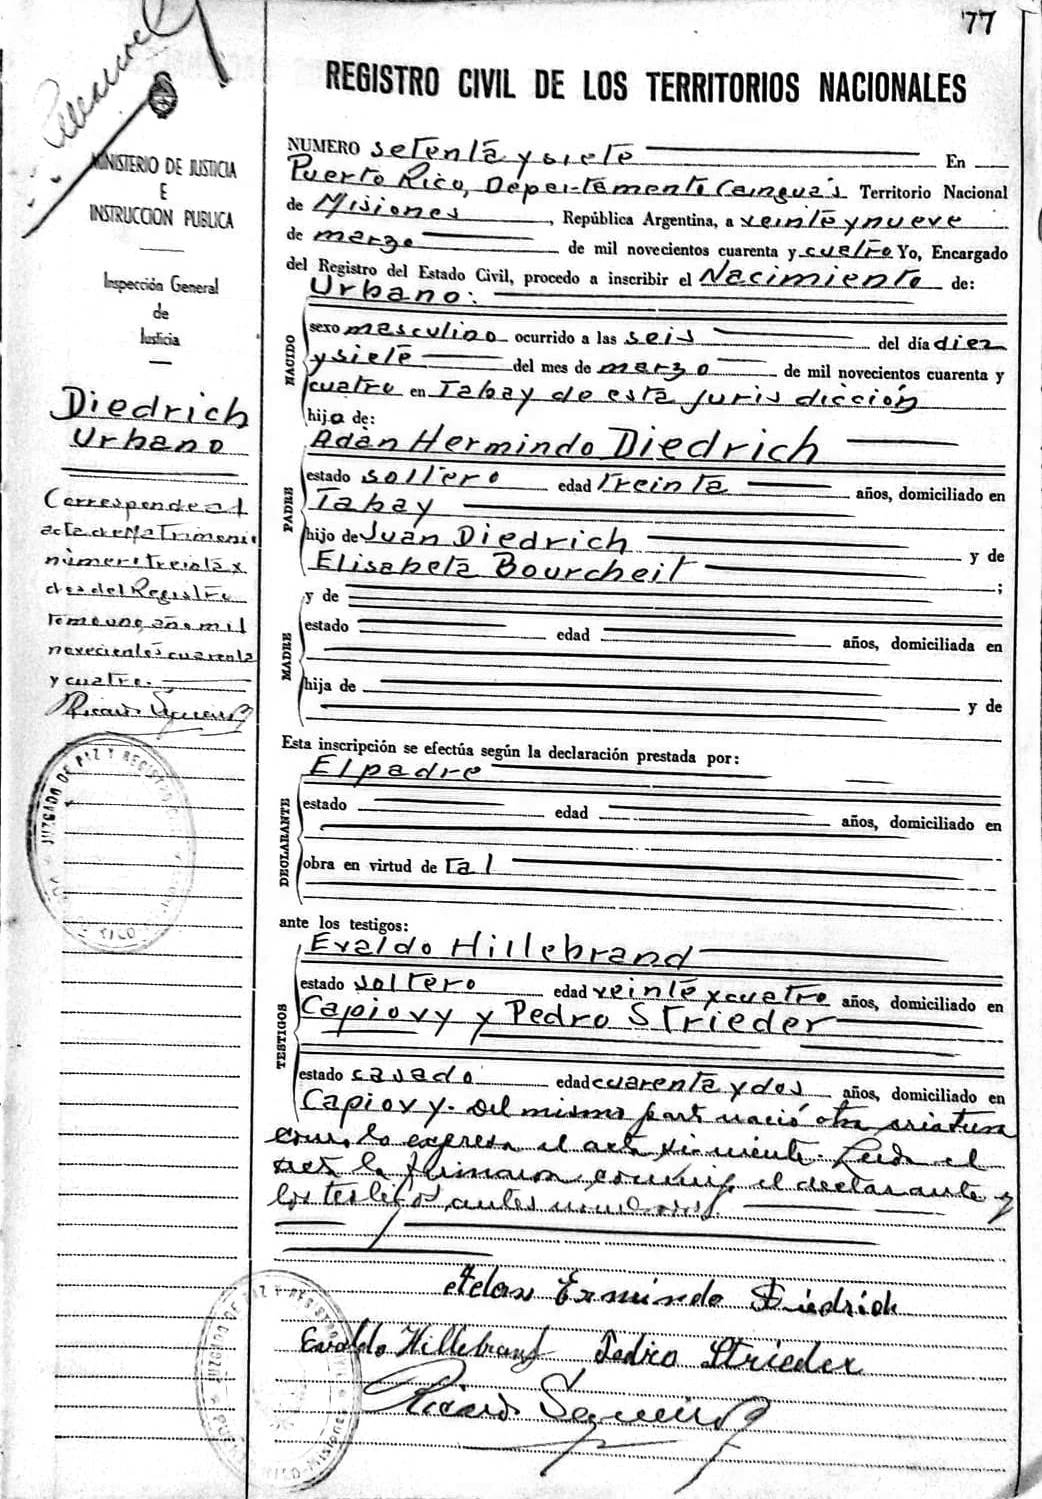 77
REGISTRO CIVIL DE LOS TERRITORIOS NACIONALES
MINISTERIO DE JUSTICIA
E
INSTRUCCION PUBLICA
Inspección General
de
Justicia
Diedrich
Urbano
Corresponde al
acta de Matrimonio
número treinta y
dos del Registro
tomo uno, año mil
novecientos cuarenta
y cuatro.
NUMERO setenta y siete En
Puerto Rico, Departamento Cainguás Territorio Nacional
de Misiones, República Argentina, a veinte y nueve
de marzo de mil novecientos cuarenta y cuatro Yo, Encargado
del Registro del Estado Civil, procedo a inscribir el Nacimiento de:
Urbano:
NACIDO
sexo masculino ocurrido a las seis del día diez
y siete del mes de marzo de mil novecientos cuarenta y
cuatro en Tabay de esta jurisdicción
hijo de:
Adán Hermindo Diedrich
PADRE
estado soltero edad treinta años, domiciliado en
Tabay
hijo de Juan Diedrich y de
Elisabeta Bourcheit ;
MADRE
y de
estado edad años, domiciliada en
hija de
y de
Esta inscripción se efectúa según la declaración prestada por:
El padre
DECLARANTE
estado edad años, domiciliado en
obra en virtud de tal
ante los testigos:
Evaldo Hillebrand
TESTIGOS
estado soltero edad veinte y cuatro años, domiciliado en
Capiovy y Pedro Strieder
estado casado edad cuarenta y dos años, domiciliado en
Capiovy. Del mismo parto nació otra criatura
como lo expresa el acta siguiente. Leida el
acta la firmaron conmigo el declarante y
los testigos antes nombrados.
Adan Ermindo Diedrich
Evaldo Hillebrand Pedro Strieder
JUZGADO DE PAZ Y REGISTRO
JUZGADO DE PAZ Y REGISTRO